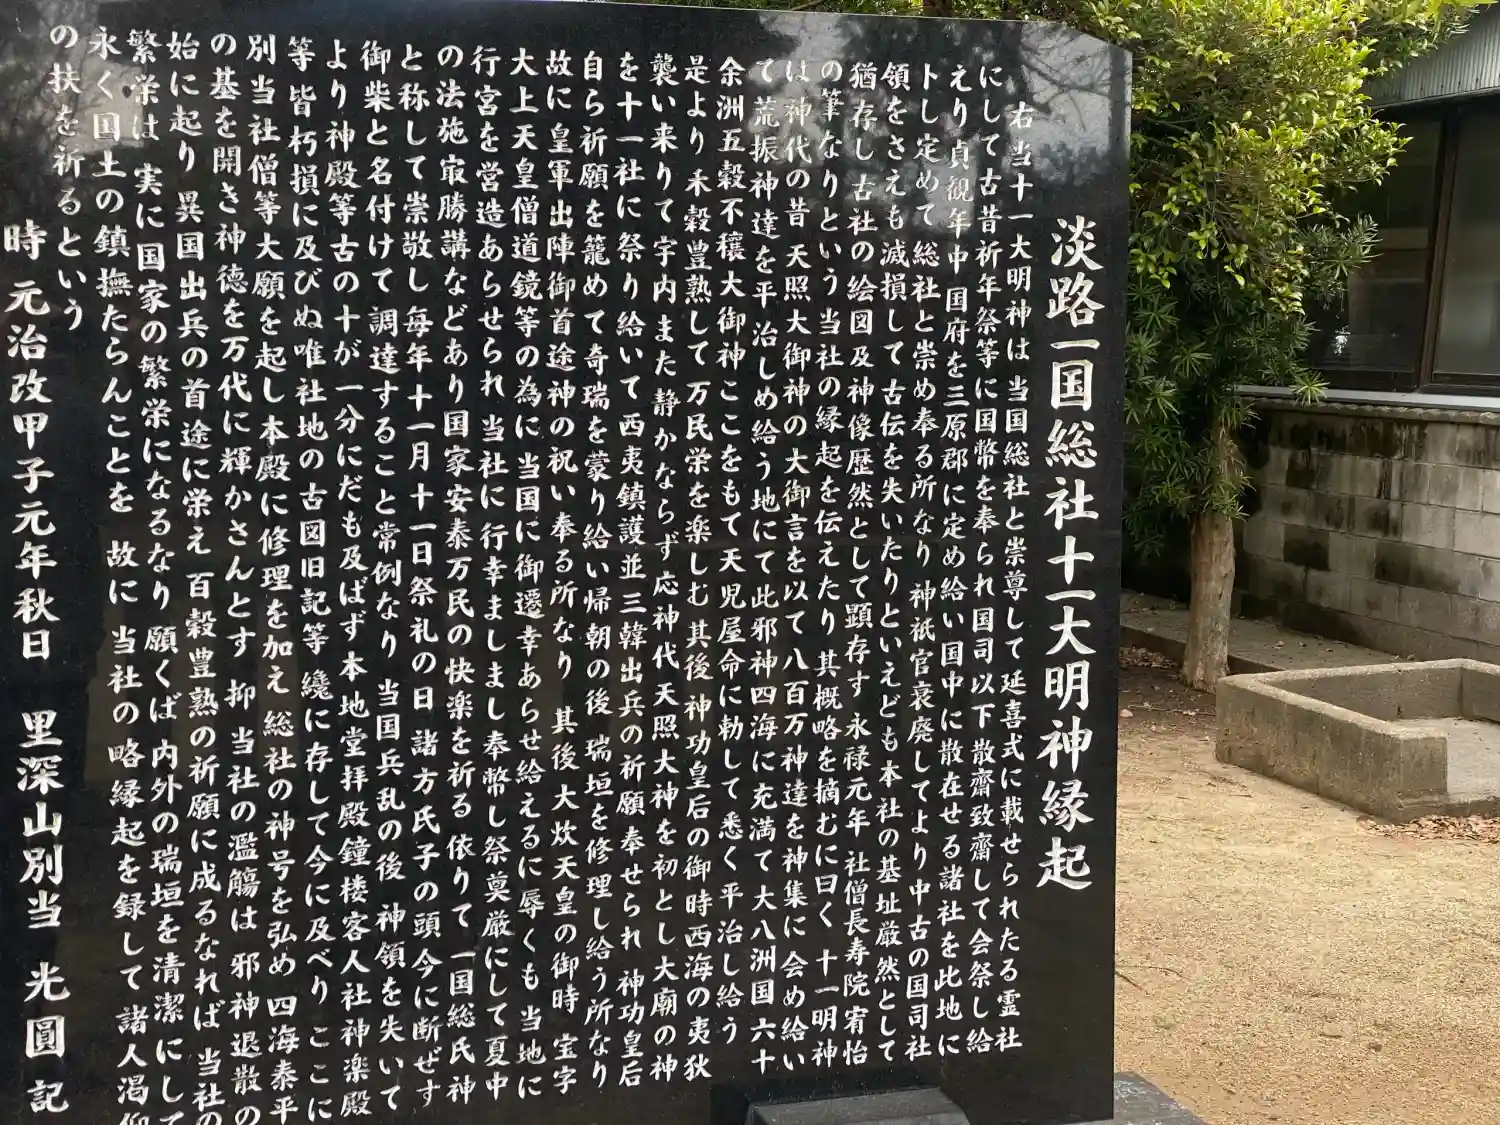 淡路一国総社十一大明神縁起
右当十一大明神は 当国総社と崇尊して 延喜式に載せられたる霊社
にして古昔祈年祭等に国幣を奉られ国司以下 散齋致齋して会祭し給
えり 貞観年中 国府を三原郡に定め給い国中に散在せる諸社を此地に
卜し定めて 総社と崇め奉る所なり 神祇官衰廃してより中古の国司社
領をさえも滅損して 古伝を失いたりといえども本社の基址厳然として
猶存し 古社の絵図及神像歴然として顕存す 永禄元年 社僧長寿院宥怡
の筆なりという 当社の縁起を伝えたり 其概略を摘むに曰く 十一明神
は 神代の昔 天照大御神の大御言を以て 八百万神達を神集に会め給い
て 荒振神達を平治しめ給う地にて 此邪神四海に充満て 大八洲国六十
余洲五穀不穣 大御神ここをもて 天児屋命に勅して 悉く平治し給う
是より 禾穀豊熟して 万民栄を楽しむ 其後神功皇后の御時 西海の夷狄
襲い来りて 宇内また静かならず 応神代天照大神を初とし大廟の神
を十一社に祭り給いて 西夷鎮護並三韓出兵の祈願奉せられ 神功皇后
自ら祈願を籠めて 奇瑞を蒙り給い帰朝の後 瑞垣を修理し給う所なり
故に皇軍出陣御首途神の祝い奉る所なり 其後 大炊天皇の御時 宝字
大上天皇僧道鏡等の為に 当国に御遷幸あらせ給えるに辱くも 当地に
行宮を営造あらせられ 当社に行幸ましまし奉幣し祭奠厳にして 夏中
の法施㝡勝講などあり 国家安泰万民の快楽を祈る 依りて 一国総氏神
と称して崇敬し 毎年十一月十一日祭礼の日 諸方氏子の頭今に断ぜず
御柴と名付けて 調達すること常例なり 当国兵乱の後 神領を失いて
より神殿等古の十が一分にだも及ばず 本地堂拝殿鐘楼客人社神楽殿
等 皆朽損に及びぬ 唯社地の古図旧記等 纔に存して今に及べり ここに
別当社僧等大願を起し 本殿に修理を加え 総社の神号を弘め 四海泰平
の基を開き神徳を万代に輝かさんとす 抑 当社の濫觴は 邪神退散の
始に起り 異国出兵の首途に栄え 百穀豊熟の祈願に成るなれば 当社の
繁栄は 実に国家の繁栄になるなり 願くば 内外の瑞垣を清潔にして
永く国土の鎮撫たらんことを 故に 当社の略縁起を録して 諸人渇仰
の扶を祈るという
時 元治改甲子元年秋日 里深山別当 光圓 記